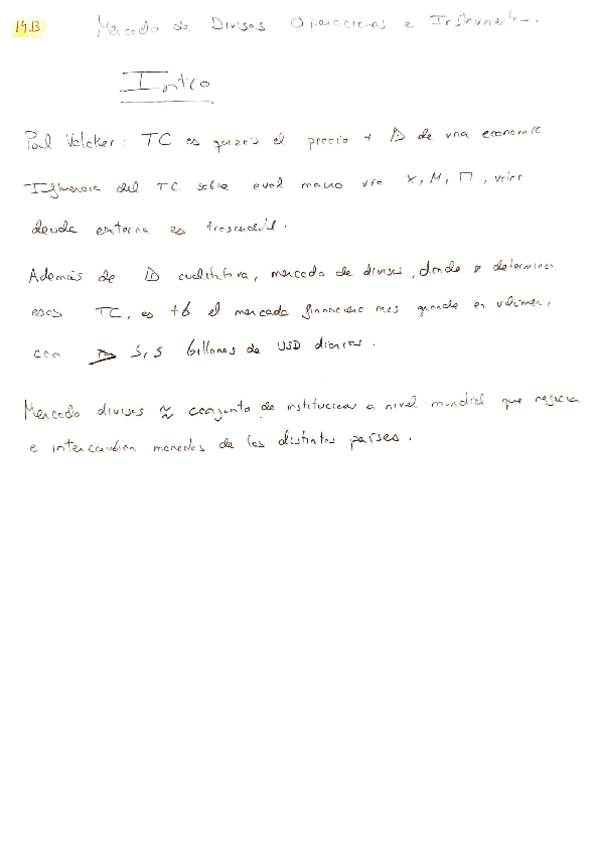 14.B Mercado de Divisas Operaciones e Instrumentos.
Intro
Paul Volcker: TC es quizás el precio + D de una economía
Influencia del TC sobre evol macro vía X, M, Π, valor
deuda externa es trascendtl.
Además de D cualitativa, mercado de divisas, donde se determinan
esos TC, es tb el mercado financiero más grande en volumen,
con 5,5 billones de USD diarios.
Mercado divisas ≈ conjunto de instituciones a nivel mundial que negocia
e intercambian monedas de los distintos países.